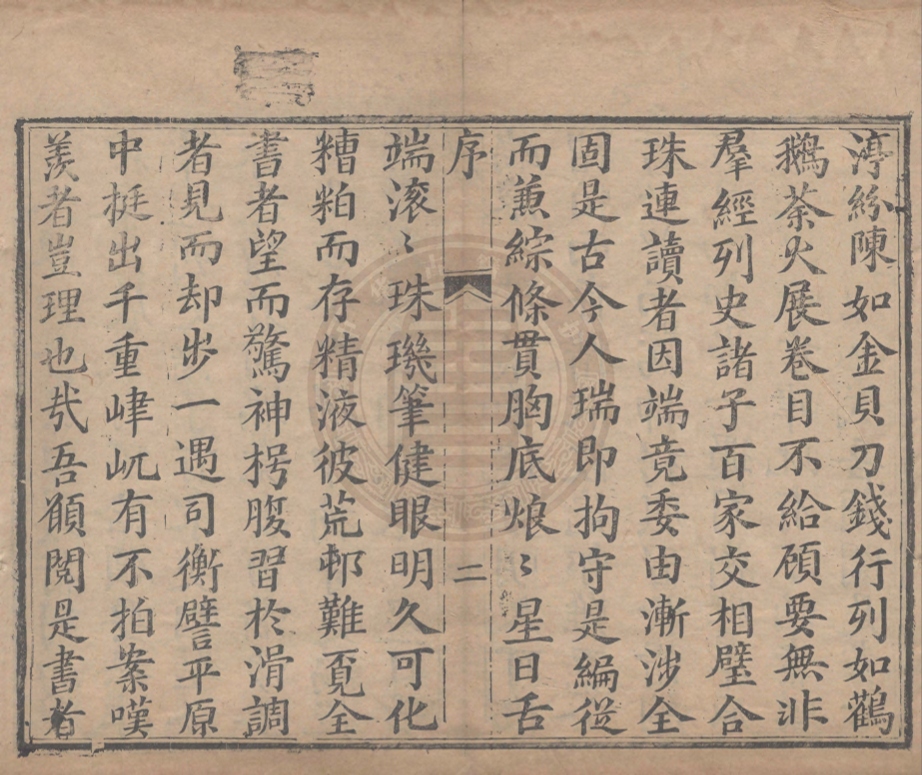 渟紛陳如金貝刀錢行列如鸛
鵝荼火展卷目不給顧要無非
羣經列史諸子百家交相璧合
珠連讀者因端竟委由漸涉全
固是古今人瑞即拘守是編從
而蒹綜條貫胸底烺〻星日舌
序
二
端滚〻珠璣筆健眼明久可化
糟粕而存精液彼荒邨難覓全
書者望而驚神枵腹習於滑調
者見而却步一遇司衡譬平原
中挺出千重峍屼有不拍案嘆
羨者豈理也㢤吾願閱是書者